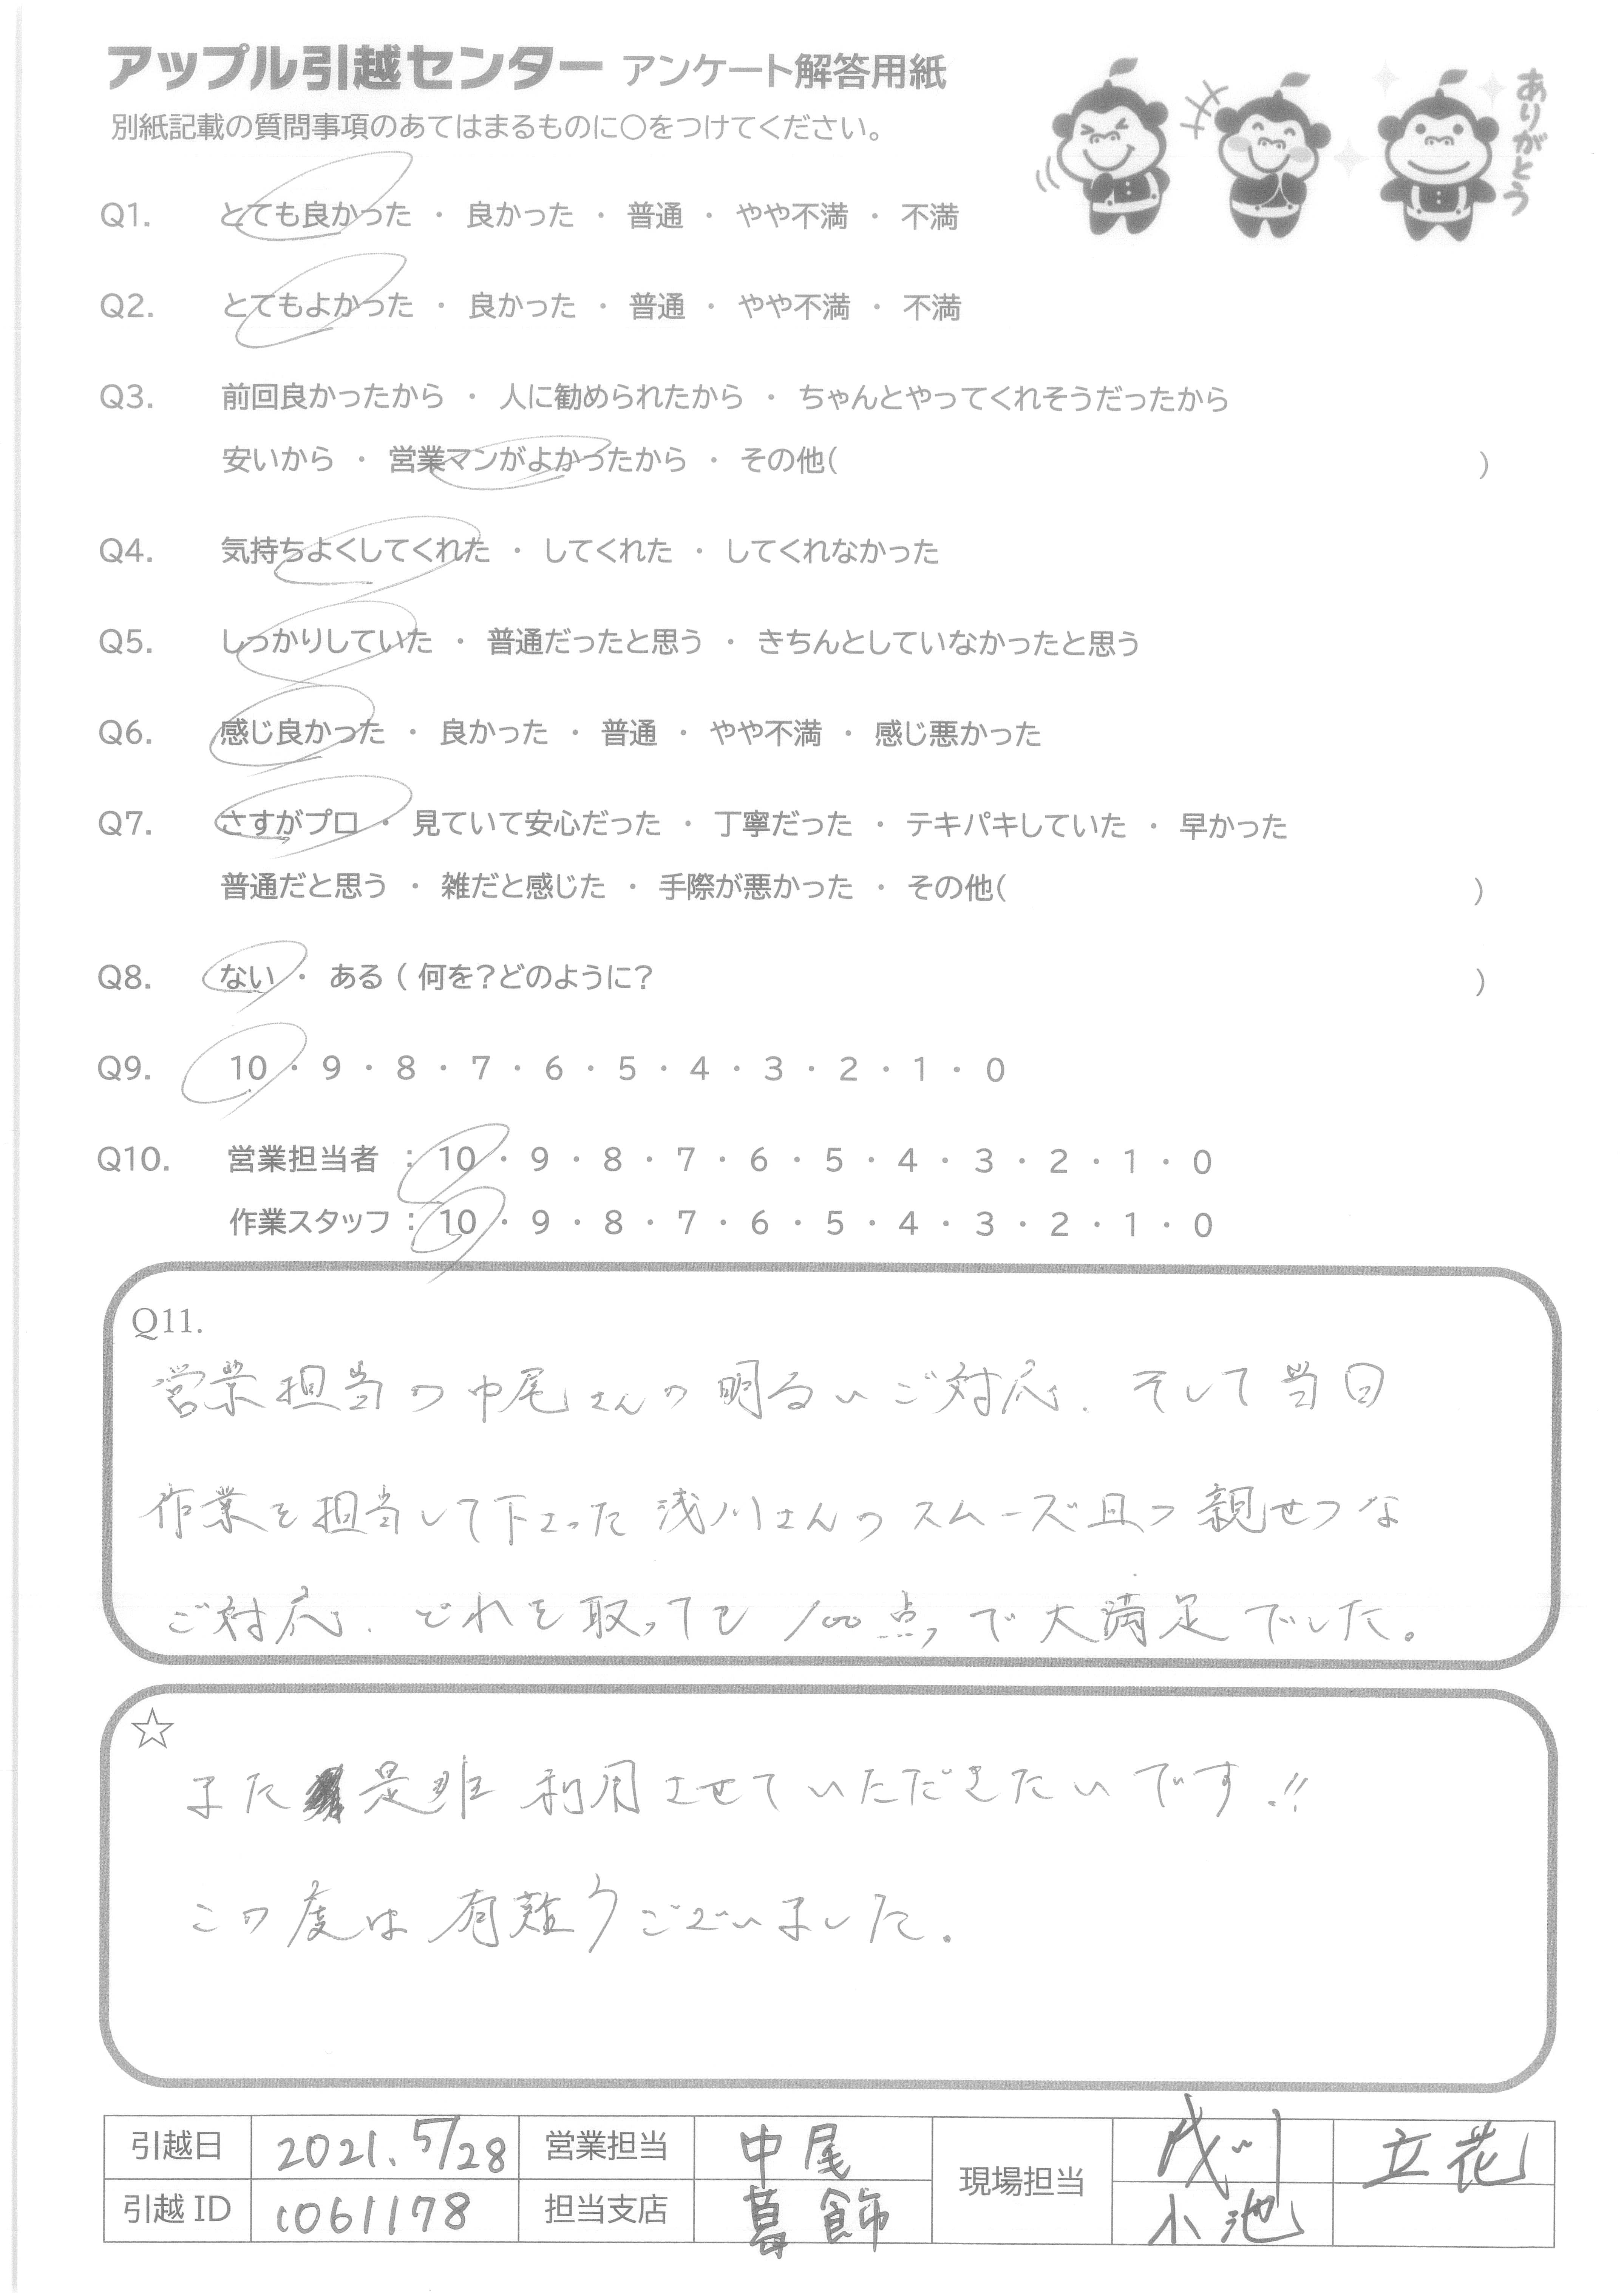 アップル引越センター アンケート解答用紙
別紙記載の質問事項のあてはまるものに○をつけてください。
ありがとう
Q1. とても良かった ・ 良かった ・ 普通 ・ やや不満 ・ 不満
Q2. とてもよかった ・ 良かった ・ 普通 ・ やや不満 ・ 不満
Q3. 前回良かったから ・ 人に勧められたから ・ ちゃんとやってくれそうだったから
安いから ・ 営業マンがよかったから ・ その他( )
Q4. 気持ちよくしてくれた ・ してくれた ・ してくれなかった
Q5. しっかりしていた ・ 普通だったと思う ・ きちんとしていなかったと思う
Q6. 感じ良かった ・ 良かった ・ 普通 ・ やや不満 ・ 感じ悪かった
Q7. さすがプロ ・ 見ていて安心だった ・ 丁寧だった ・ テキパキしていた ・ 早かった
普通だと思う ・ 雑だと感じた ・ 手際が悪かった ・ その他( )
Q8. ない ・ ある ( 何を?どのように? )
Q9. 10 ・ 9 ・ 8 ・ 7 ・ 6 ・ 5 ・ 4 ・ 3 ・ 2 ・ 1 ・ 0
Q10. 営業担当者 : 10 ・ 9 ・ 8 ・ 7 ・ 6 ・ 5 ・ 4 ・ 3 ・ 2 ・ 1 ・ 0
作業スタッフ : 10 ・ 9 ・ 8 ・ 7 ・ 6 ・ 5 ・ 4 ・ 3 ・ 2 ・ 1 ・ 0
Q11.
営業担当の中尾さんの明るいご対応、そして当日
作業を担当して下さった浅川さんのスムーズ且つ親せつな
ご対応、どれを取っても100点で大満足でした。
☆
また是非利用させていただきたいです!!
この度は有難うございました。
引越日 2021.5/28 営業担当 中尾 現場担当 浅川 立花
引越ID 1061178 担当支店 葛飾 小池